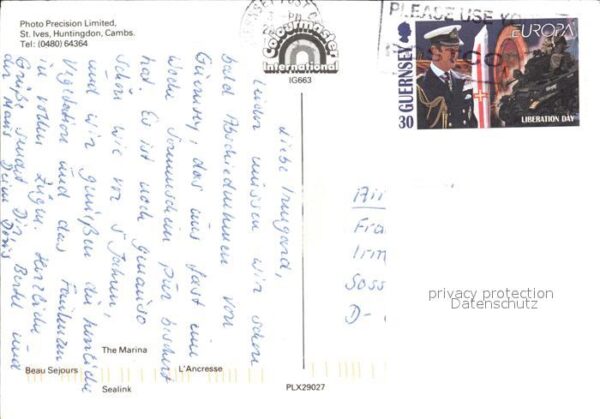 Photo Precision Limited,
St. Ives, Huntingdon, Cambs.
Tel: (0480) 64364
Colourmaster
International
IG663
PLEASE USE
EUROPA
GUERNSEY
30
LIBERATION DAY
Liebe Irmgard,
leider müssen wir schon
bald Abschied nehmen von
Guernsey, das uns fast eine
Woche Sonnenschein pur beschert
hat. Es ist noch genauso
schön wie vor 5 Jahren,
und wir genießen die herrliche
Vegetation und das
in vollen Zügen. Herzliche
Grüße sendet Dir, Bertel und
der Maus Deine Doris
Fra
Irm
Soss
D-
privacy protection
Datenschutz
The Marina
Beau Sejours
L'Ancresse
Sealink
PLX29027